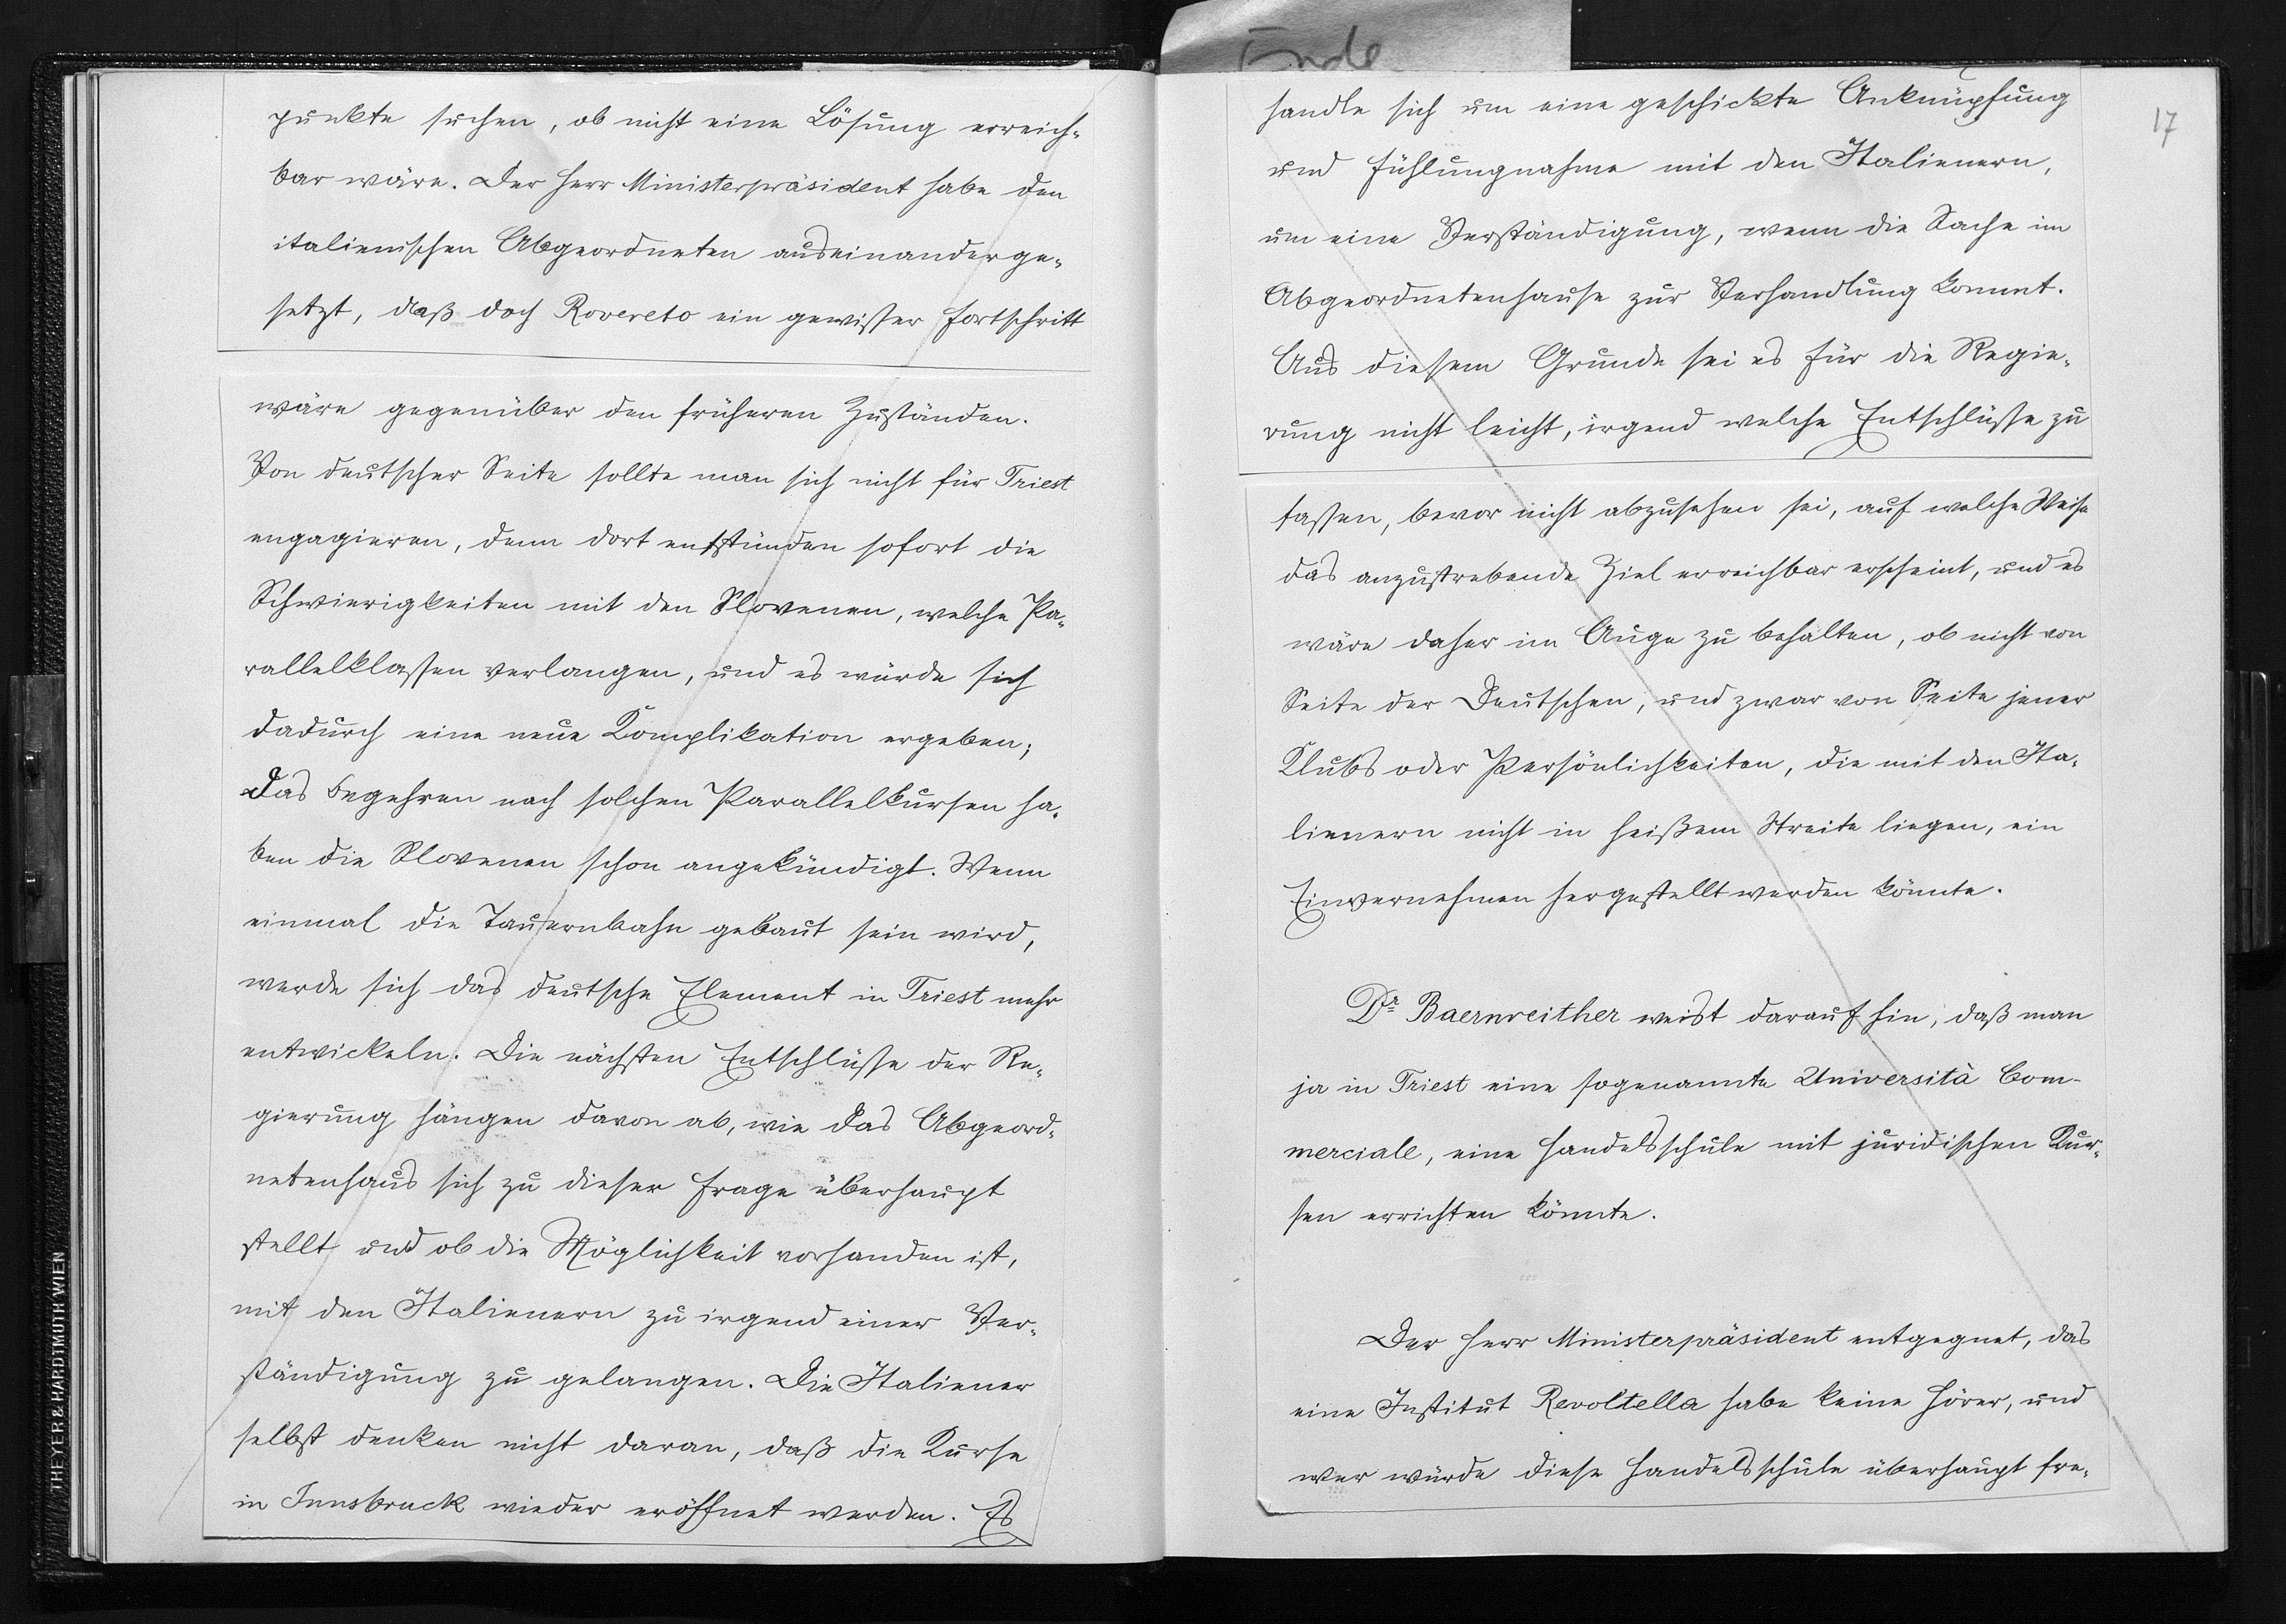 punkte suchen, ob nicht eine Lösung erreich-
bar wäre. Der Herr Ministerpräsident habe den
italienischen Abgeordneten auseinanderge-
setzt, daß doch Rovereto ein gewisser Fortschritt
wäre gegenüber den früheren Zuständen.
Von deutscher Seite sollte man sich nicht für Triest
engagieren, denn dort entstünden sofort die
Schwierigkeiten mit den Slovenen, welche Pa-
rallelklassen verlangen, und es würde sich
dadurch eine neue Komplikation ergeben;
Das Begehren nach solchen Parallelkursen ha-
ben die Slovenen schon angekündigt. Wenn
einmal die Tauernbahn gebaut sein wird,
werde sich das deutsche Element in Triest mehr
entwickeln. Die nächsten Entschlüsse der Re-
gierung hängen davon ab, wie das Abgeord-
netenhaus sich zu dieser Frage überhaupt
stellt und ob die Möglichkeit vorhanden ist,
mit den Italienern zu irgend einer Ver-
ständigung zu gelangen. Die Italiener
selbst denken nicht daran, daß die Kurse
in Innsbruck wieder eröffnet werden. Es
THEYER & HARDTMUTH, WIEN
Ende
17
handle sich um eine geschickte Anknüpfung
und Fühlungnahme mit den Italienern,
um eine Verständigung, wenn die Sache im
Abgeordnetenhause zur Verhandlung kommt.
Aus diesem Grunde sei es für die Regie-
rung nicht leicht, irgend welche Entschlüsse zu
fassen, bevor nicht abzusehen sei, auf welche Weise
das anzustrebende Ziel erreichbar erscheint, und es
wäre daher im Auge zu behalten, ob nicht von
Seite der Deutschen, und zwar von Seite jener
Klubs oder Persönlichkeiten, die mit den Ita-
lienern nicht in heißem Streite liegen, ein
Einvernehmen hergestellt werden könnte.
Dr Baernreither weist darauf hin, daß man
ja in Triest eine sogenannte Università Com-
merciale, eine Handelsschule mit juridischen Kur-
sen errichten könnte.
Der Herr Ministerpräsident entgegnet, das
eine Institut Revoltella habe keine Hörer, und
wer würde diese Handelsschule überhaupt fre-